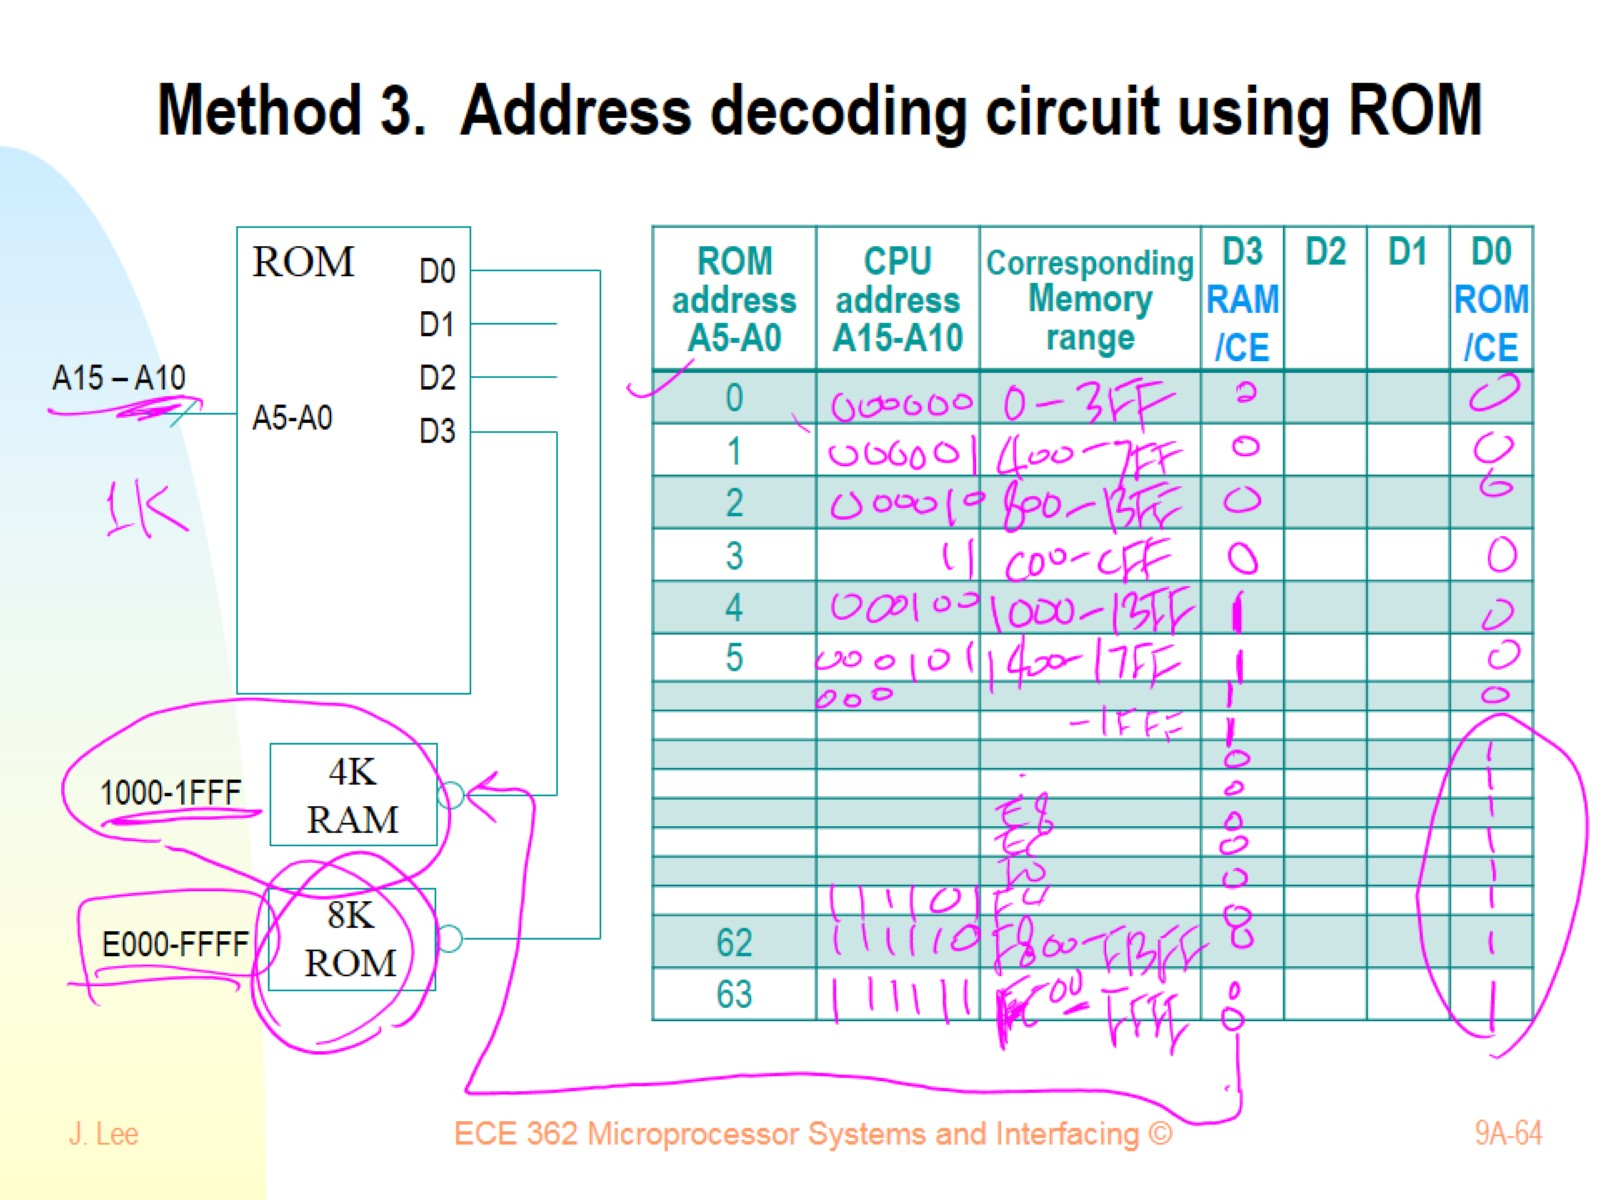 Method 3. Address decoding circuit using ROM
ROM
D0
D1
D2
D3
A15 – A10
A5-A0
1K
1000-1FFF
4K
RAM
E000-FFFF
8K
ROM
ROM address A5-A0 CPU address A15-A10 Corresponding Memory range D3 RAM /CE D2 D1 D0 ROM /CE
0 000000 0-3FF 0
1 000001 400-7FF 0 0
2 000010 800-13FF 0 0
3 11 C00-CFF 0 0
4 000100 1000-13FF 1 0
5 000101 1400-17FF 1 0
000 1 0
-1FFF 1 1
0 1
0 1
E8 0 1
EC 0 1
0 1
111101 0 1
62 111110 F800-FBFF 0 1
63 111111 FC00-FFFF 0 1
J. Lee
ECE 362 Microprocessor Systems and Interfacing ©
9A-64